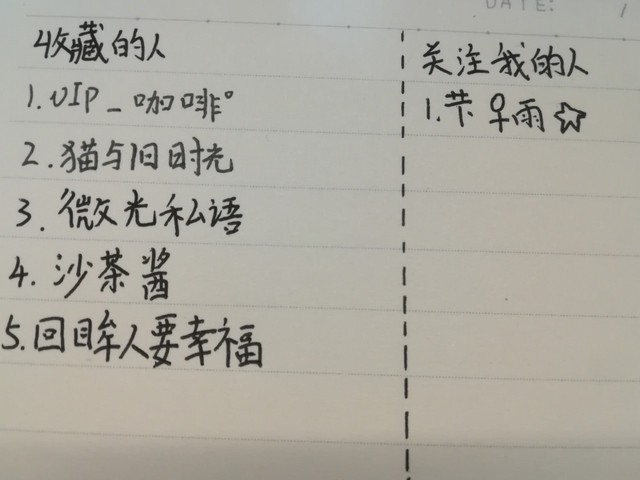 DATE:
收藏的人
1.VIP_咖啡°
2.猫与旧时光
3.微光私语
4.沙茶酱
5.回眸人要幸福
关注我的人
1.节♀雨☆